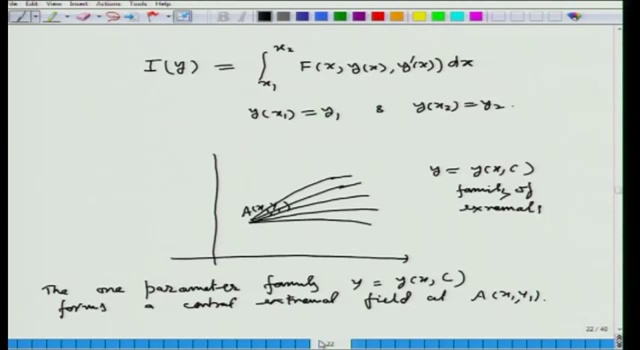 Edit View Insert Actions Tools Help
I(y) = ∫_{x₁}^{x₂} F(x, y(x), y'(x)) dx
y(x₁) = y₁ & y(x₂) = y₂.
y = y(x, C)
family of
extremals
A(x₁, y₁)
The one parameter family y = y(x, C)
forms a central extremal field at A(x₁, y₁).
22 / 40
22